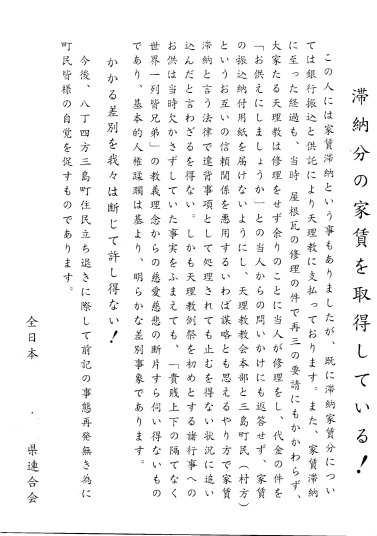 滞納分の家賃を取得している!
この人には家賃滞納という事もありましたが、既に滞納家賃分につい
ては銀行振込と供託により天理教に支払っております。また、家賃滞納
に至った経過も、当時 屋根瓦の修理の件で再三の要請にもかかわらず、
大家たる天理教は修理をせず余りのことに当人が修理をし、代金の件を
「お供えにしましょうか」との当人からの問いかけにも返答せず、家賃
の振込納付用紙を届けないようにし、天理教教会本部と三島町民(村方)
というお互いの信頼関係を悪用するいわば謀略とも思えるやり方で家賃
滞納と言う法律で違背事項として処理されても止むを得ない状況に追い
込んだと言わざるを得ない。しかも天理教例祭を初めとする諸行事への
お供は当時欠かさずしていた事実をふまえても、「貴賎上下の隔てなく
世界一列皆兄弟」の教義理念からの慈愛慈悲の断片すら伺い得ないもの
であり、基本的人権蹂躙は基より、明らかな差別事象であります。
かかる差別を我々は断じて許し得ない!
今後、八丁四方三島町住民立ち退きに際して前記の事態再発無き為に
町民皆様の自覚を促すものであります。
全日本 . 県連合会